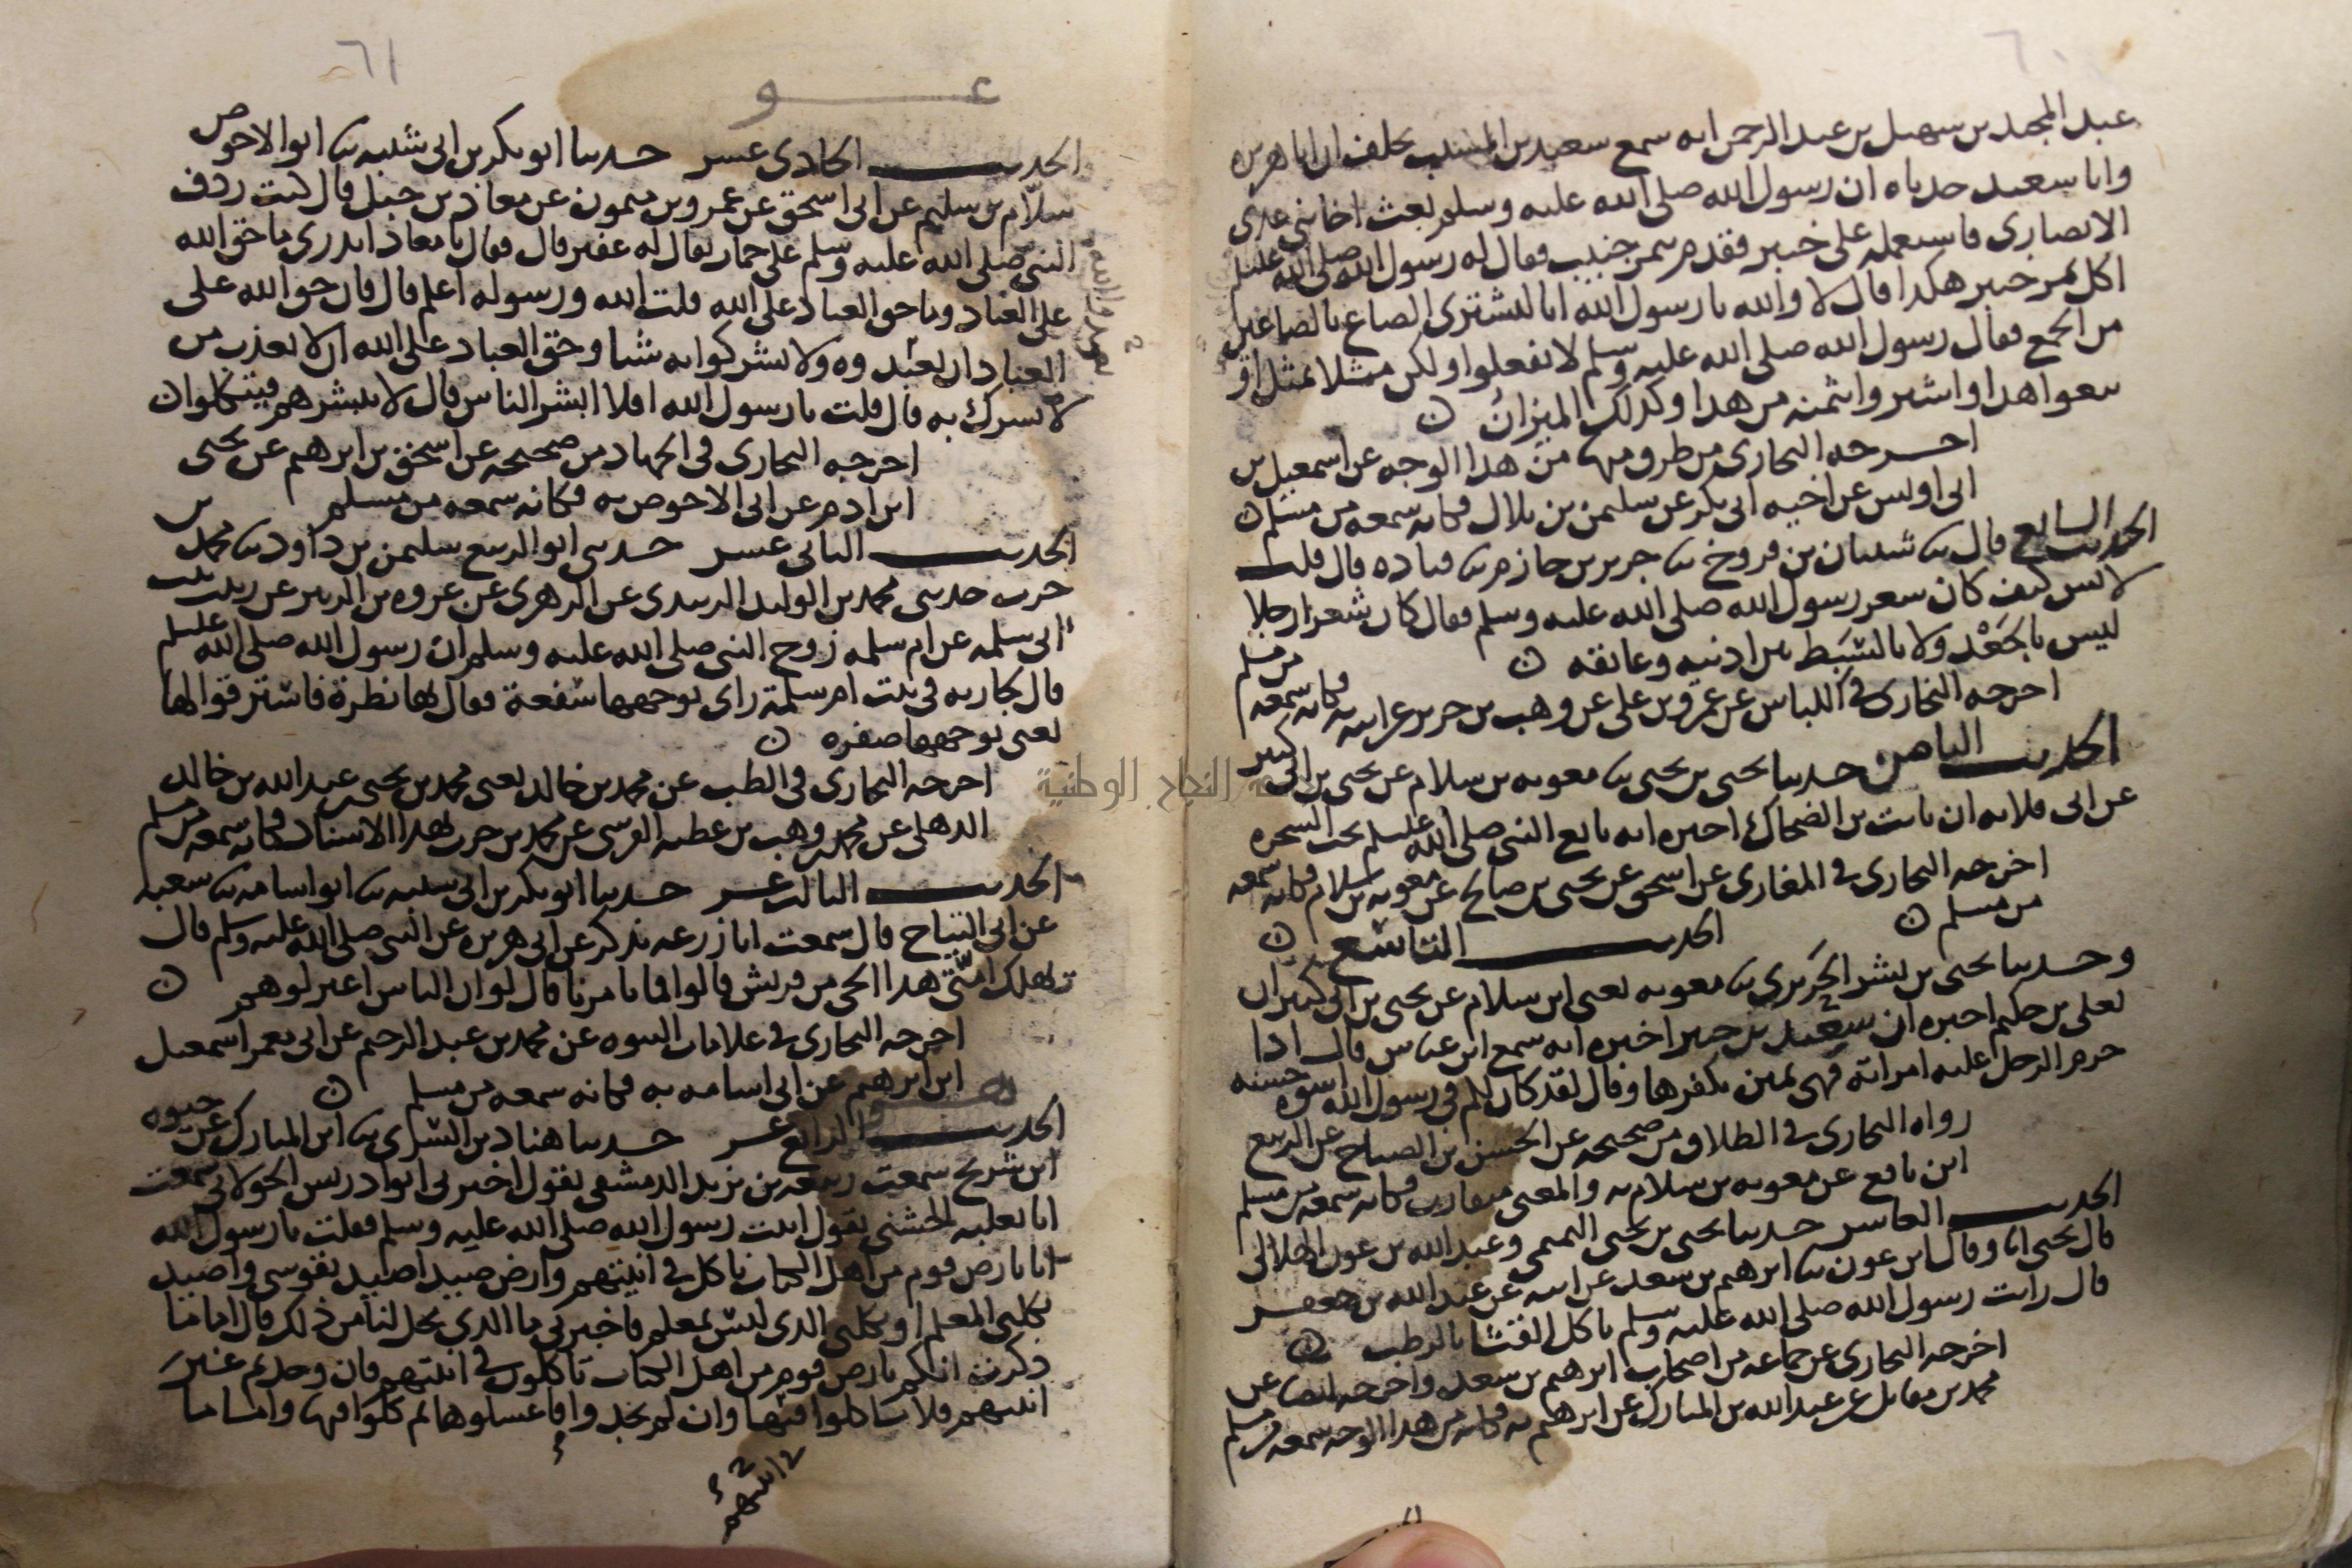 ٦٠
عبد المجيد بن سهيل بن عبد الرحمن انه سمع سعيد بن المسيب يحلف ان ابا هريره
وابا سعيد حدثاه ان رسول الله صلى الله عليه وسلم بعث اخا بني عدي
الانصاري فاستعمله على خيبر فقدم بتمر جنيب فقال له رسول الله صلى الله عليه وسلم
اكل تمر خيبر هكذا قال لا والله يا رسول الله انا لنشتري الصاع بالصاعين
من الجمع فقال رسول الله صلى الله عليه وسلم لا تفعلوا ولكن مثلا بمثل او
بيعوا هذا واشتروا بثمنه من هذا وكذلك الميزان
اخرجه البخاري من طرق منها من هذا الوجه عن اسمعيل بن
ابي اويس عن اخيه ابي بكر عن سليمن بن بلال فكانه سمعه من مسلم
الحديث السابع قال ثنا شيبان بن فروخ ثنا جرير بن حازم ثنا قتاده قال قلت
لانس كيف كان شعر رسول الله صلى الله عليه وسلم فقال كان شعرا رجلا
ليس بالجعد ولا بالسبط بين اذنيه وعاتقه
اخرجه البخاري في اللباس عن عمرو بن علي عن وهب بن جرير عن ابيه به فكانه سمعه من مسلم
الحديث الثامن حدثنا يحيى بن يحيى ثنا معويه بن سلام عن يحيى بن ابي كثير
عن ابي قلابه ان ثابت بن الضحاك اخبره انه بايع النبي صلى الله عليه وسلم تحت الشجره
اخرجه البخاري في المغازي عن اسحق عن يحيى بن صالح عن معويه بن سلام فكانه سمعه
من مسلم الحديث التاسع
وحدثنا يحيى بن بشر الحريري ثنا معويه يعني ابن سلام عن يحيى بن ابي كثير ان
يعلى بن حكيم اخبره ان سعيد بن جبير اخبره انه سمع ابن عباس قال اذا
حرم الرجل عليه امراته فهي يمين يكفرها وقال لقد كان لكم في رسول الله اسوه حسنه
رواه البخاري في الطلاق من صحيحه عن الحسن بن الصباح عن الربيع
ابن نافع عن معويه بن سلام به والمعنى متقارب فكانه سمعه من مسلم
الحديث العاشر حدثنا يحيى بن يحيى التميمي وعبد الله بن عون الهلالي
قال يحيى انا وقال ابن عون ثنا ابرهيم بن سعد عن ابيه عن عبد الله بن جعفر
قال رايت رسول الله صلى الله عليه وسلم ياكل القثا بالرطب
اخرجه البخاري عن جماعه من اصحاب ابرهيم بن سعد واخرجه ايضا عن
محمد بن مقاتل عن عبد الله بن المبارك عن ابرهيم به فكانه من هذا الوجه سمعه من مسلم
٦١
الحديث الحادي عشر حدثنا ابو بكر بن ابي شيبه ثنا ابو الاحوص
سلام بن سليم عن ابي اسحق عن عمرو بن ميمون عن معاذ بن جبل قال كنت ردف
النبي صلى الله عليه وسلم على حمار يقال له عفير قال فقال يا معاذ اتدري ما حق الله
على العباد وما حق العباد على الله قلت الله ورسوله اعلم قال فان حق الله على
العباد ان يعبدوه ولا يشركوا به شيا وحق العباد على الله ان لا يعذب من
لا يشرك به قال قلت يا رسول الله افلا ابشر الناس قال لا تبشرهم فيتكلوا
اخرجه البخاري في الجهاد من صحيحه عن اسحق بن ابرهيم عن يحيى
ابن ادم عن ابي الاحوص به فكانه سمعه من مسلم
الحديث الثاني عشر حدثني ابو الربيع سليمن بن داود ثنا محمد بن
حرب حدثني محمد بن الوليد الزبيدي عن الزهري عن عروه بن الزبير عن زينب بنت
ابي سلمه عن ام سلمه زوج النبي صلى الله عليه وسلم ان رسول الله صلى الله عليه وسلم
قال لجاريه في بيت ام سلمة راى بوجهها سفعة فقال بها نظرة فاسترقوا لها
يعني بوجهها صفره
اخرجه البخاري في الطب عن محمد بن خالد يعني محمد بن يحيى بن عبد الله بن خالد
الذهلي عن محمد بن وهب بن عطيه القرشي عن محمد بن حرب بهذا الاسناد فكانه سمعه من مسلم
الحديث الثالث عشر حدثنا ابو بكر بن ابي شيبه ثنا ابو اسامه ثنا شعبه
عن ابي التياح قال سمعت ابا زرعه يذكر عن ابي هريره عن النبي صلى الله عليه وسلم قال
تهلك امتي هذا الحي من قريش قالوا فما تامرنا قال لو ان الناس اعتزلوهم
اخرجه البخاري في علامات النبوه عن محمد بن عبد الرحيم عن ابي معمر اسمعيل
ابن ابرهيم عن ابي اسامه به فكانه سمعه من مسلم
الحديث الرابع عشر حدثنا هناد بن السري ثنا ابن المبارك عن حيوه
ابن شريح سمعت ربيعه بن يزيد الدمشقي يقول اخبرني ابو ادريس الخولاني سمعت
ابا ثعلبه الخشني يقول اتيت رسول الله صلى الله عليه وسلم فقلت يا رسول الله
انا بارض قوم من اهل الكتاب ناكل في انيتهم وارض صيد اصيد بقوسي واصيد
بكلبي المعلم او بكلبي الذي ليس بمعلم فاخبرني ما الذي يحل لنا من ذلك قال اما ما
ذكرت انكم بارض قوم من اهل الكتاب تاكلون في انيتهم فان وجدتم غير
انيتهم فلا تاكلوا فيها وان لم تجدوا فاغسلوها ثم كلوا فيها واما ما
جامعة النجاح الوطنية